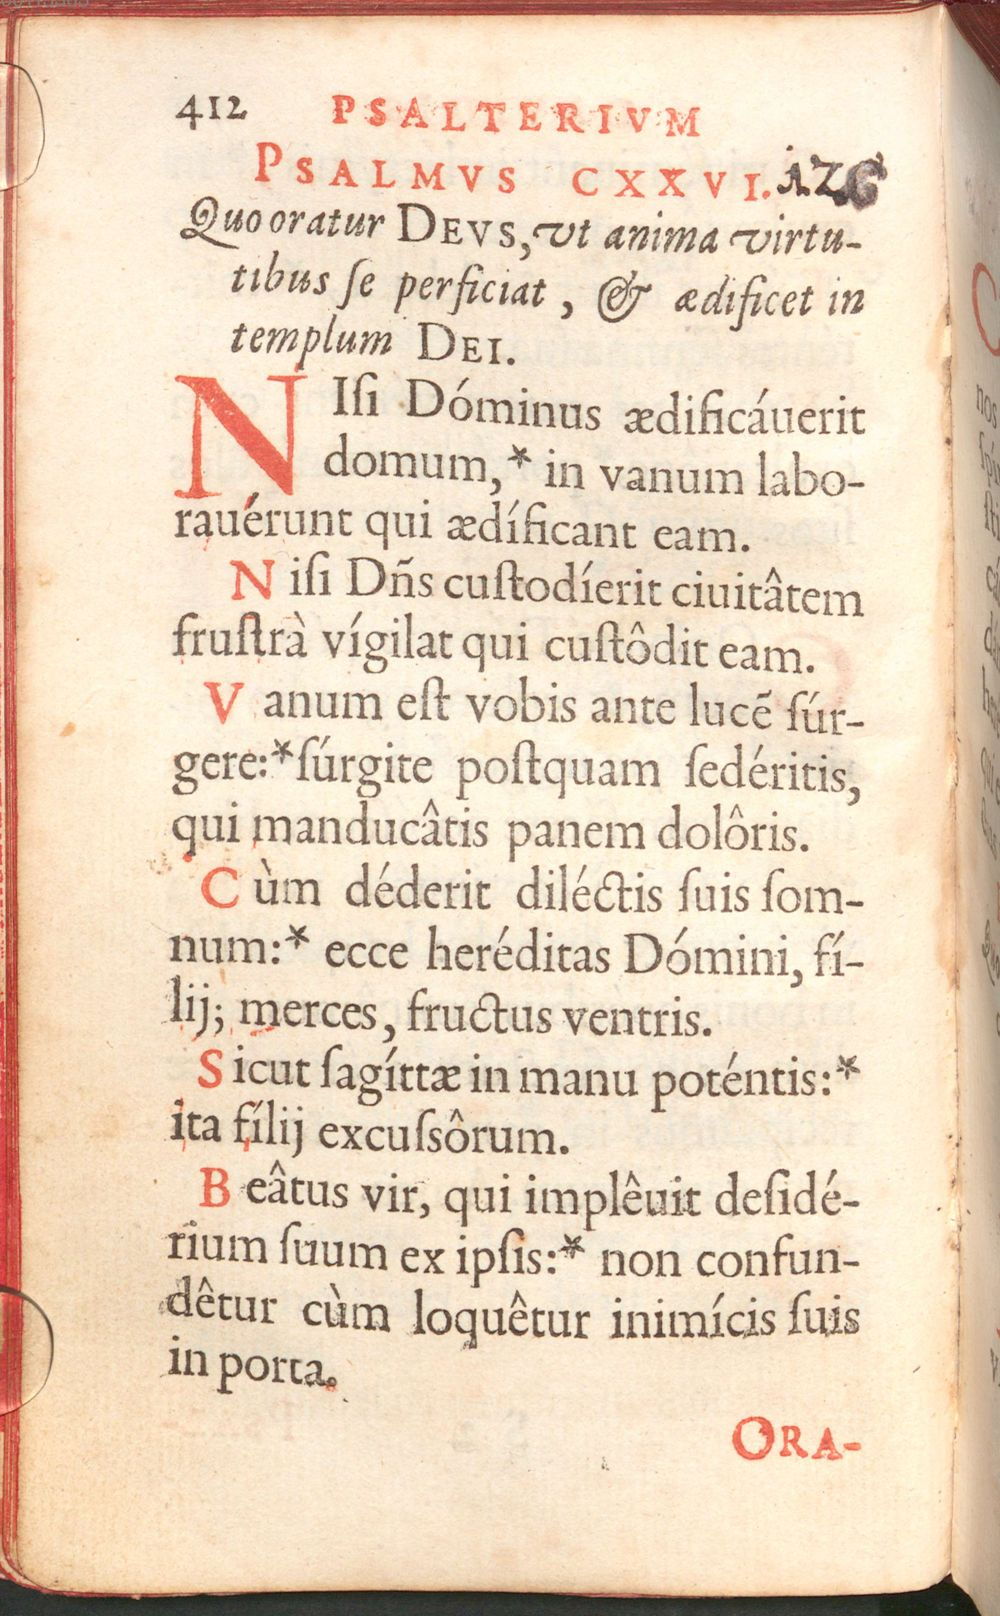 412 PSALTERIVM
PSALMVS CXXVI. 126
Quo oratur DEVS, vt anima virtu-
tibus ſe perficiat, & ædificet in
templum DEI.
NIſi Dóminus ædificáuerit
domum,* in vanum labo-
rauérunt qui ædíficant eam.
Niſi Dñs cuſtodíerit ciuitâtem
fruſtrà vígilat qui cuſtôdit eam.
Vanum eſt vobis ante lucẽ ſúr-
gere:* ſúrgite poſtquam ſedéritis,
qui manducâtis panem dolôris.
Cùm déderit diléctis ſuis ſom-
num:* ecce heréditas Dómini, fí-
lij; merces, fructus ventris.
Sicut ſagíttæ in manu poténtis:*
ita fílij excuſsôrum.
Beâtus vir, qui implêuit deſidé-
rium ſuum ex ipſis:* non confun-
dêtur cùm loquêtur inimícis ſuis
in porta.
ORA-